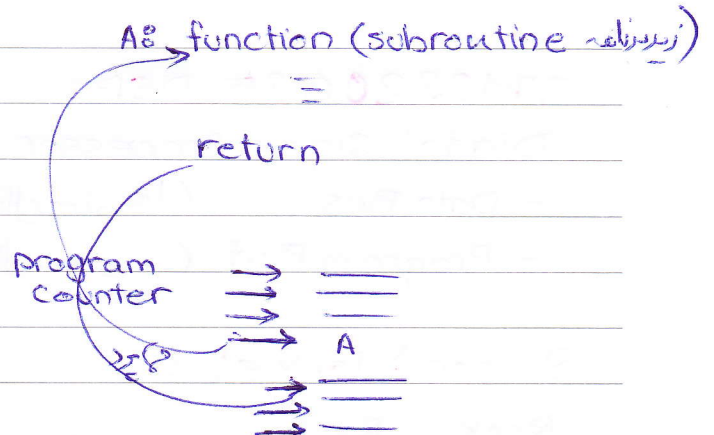 A: function (subroutine زیربرنامه)
return
program
counter
A